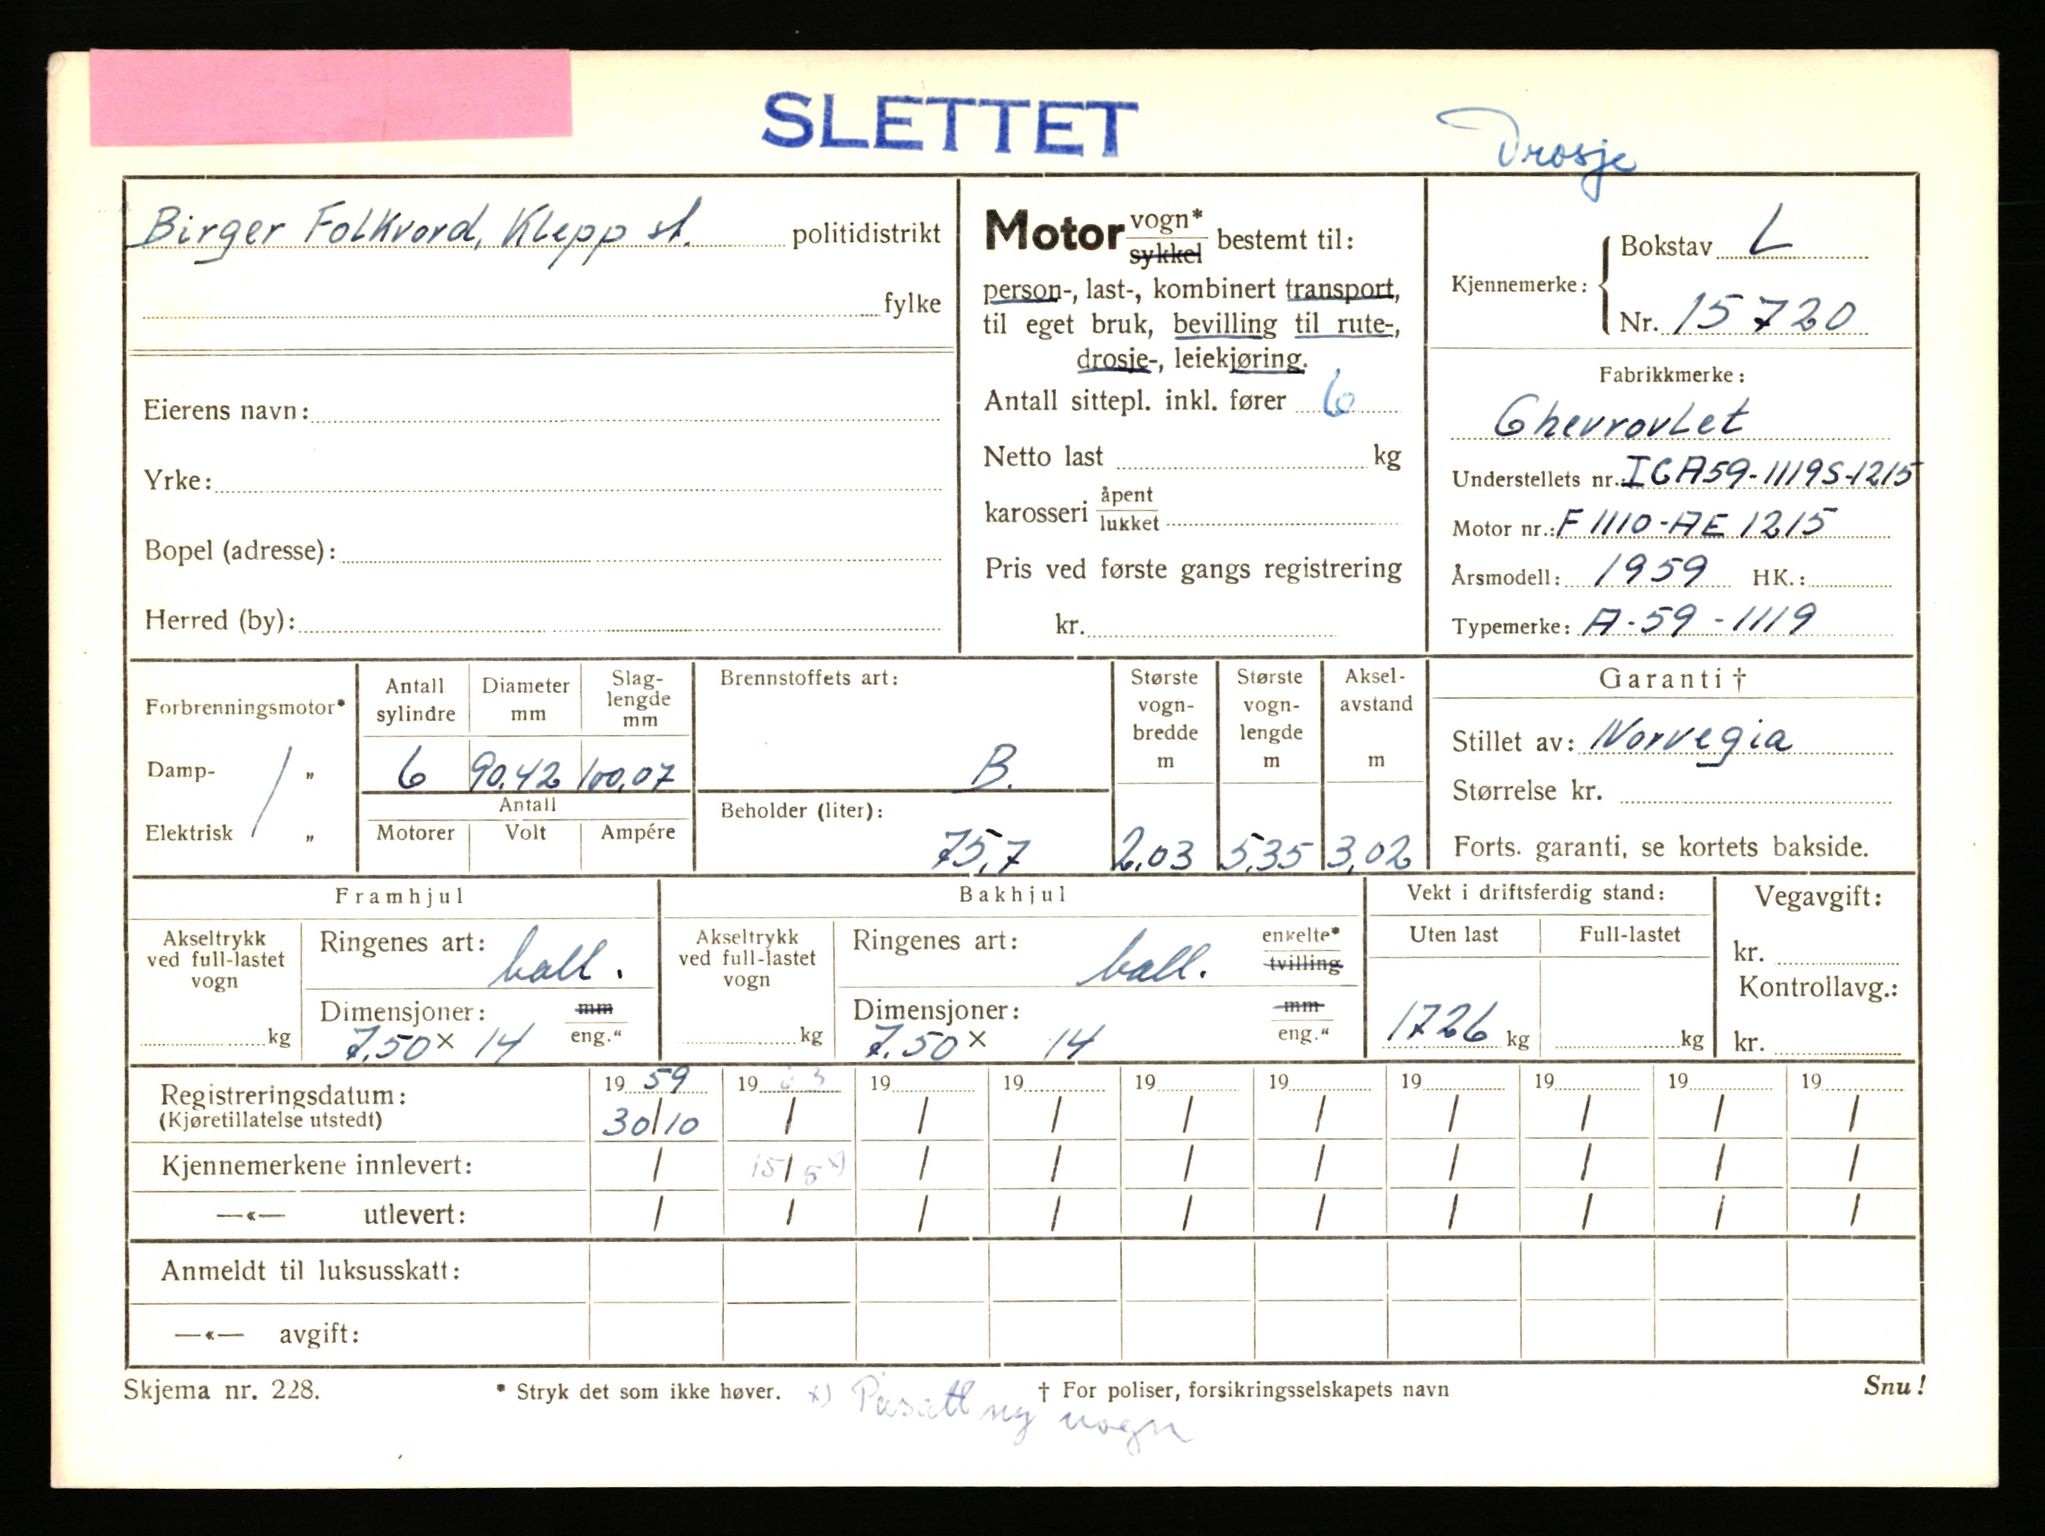 SLETTET
Drosje
Birger Folkvord, Klepp st. politidistrikt
fylke
Eierens navn:
Yrke:
Bopel (adresse):
Herred (by):
Motor vogn* sykkel bestemt til:
person-, last-, kombinert transport,
til eget bruk, bevilling til rute-,
drosje-, leiekjøring.
Antall sittepl. inkl. fører 6
Netto last kg
karosseri åpent lukket
Pris ved første gangs registrering
kr.
Kjennemerke: Bokstav L
Nr. 15720
Fabrikkmerke:
Chevrovlet
Understellets nr.: ICA59-1119S-1215
Motor nr.: F1110-AE1215
Årsmodell: 1959 HK.:
Typemerke: A-59-1119
Forbrenningsmotor*
Damp- "
Elektrisk "
Antall sylindre
6
Diameter mm
90.42
Slag-
lengde
mm
100,07
Antall
Motorer Volt Ampére
Brennstoffets art:
B.
Beholder (liter):
75,7
Største
vogn-
bredde
m
2,03
Største
vogn-
lengde
m
5,35
Aksel-
avstand
m
3,02
Garanti †
Stillet av: Norvegia
Størrelse kr.
Forts. garanti, se kortets bakside.
Framhjul
Akseltrykk
ved full-lastet
vogn
kg
Ringenes art: ball.
Dimensjoner: mm
7,50 x 14 eng."
Bakhjul
Akseltrykk
ved full-lastet
vogn
kg
Ringenes art: ball. enkelte* tvilling
Dimensjoner: mm
7,50 x 14 eng."
Vekt i driftsferdig stand:
Uten last Full-lastet
1726 kg kg
Vegavgift:
kr.
Kontrollavg.:
kr.
Registreringsdatum: 19 59 19 63 19 19 19 19 19 19 19 19
(Kjøretillatelse utstedt) 30/10 / / / / / / / / /
Kjennemerkene innlevert: / 15/5 x) / / / / / / / /
—«— utlevert: / / / / / / / / / /
Anmeldt til luksusskatt:
—«— avgift:
Skjema nr. 228. * Stryk det som ikke høver. † For poliser, forsikringsselskapets navn Snu!
x) Påsatt ny vogn